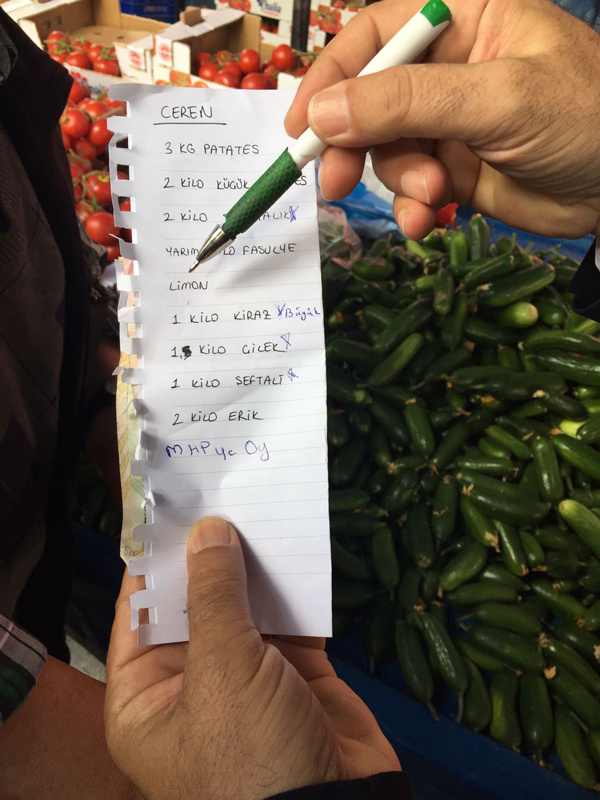 CEREN
3 KG PATATES
2 KILO KÜGÜK ES
2 KILO ALIK
YARIM LO FASULYE
LIMON
1 KILO KIRAZ Büyük
1,5 KILO CILEK
1 KILO SEFTALI
2 KILO ERIK
MHP ye Oy